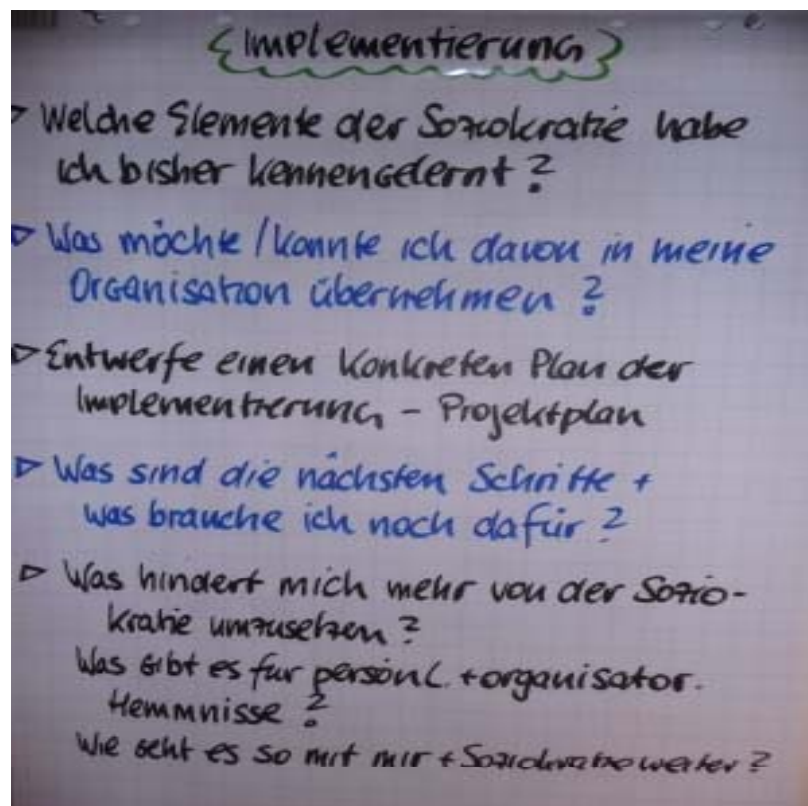 Implementierung
▷ Welche Elemente der Soziokratie habe
ich bisher kennengelernt?
▷ Was möchte/könnte ich davon in meine
Organisation übernehmen?
▷ Entwerfe einen konkreten Plan der
Implementierung - Projektplan
▷ Was sind die nächsten Schritte +
was brauche ich noch dafür?
▷ Was hindert mich mehr von der Sozio-
kratie umzusetzen?
Was gibt es für persönl. + organisator.
Hemmnisse?
Wie geht es so mit mir + Soziokratie weiter?